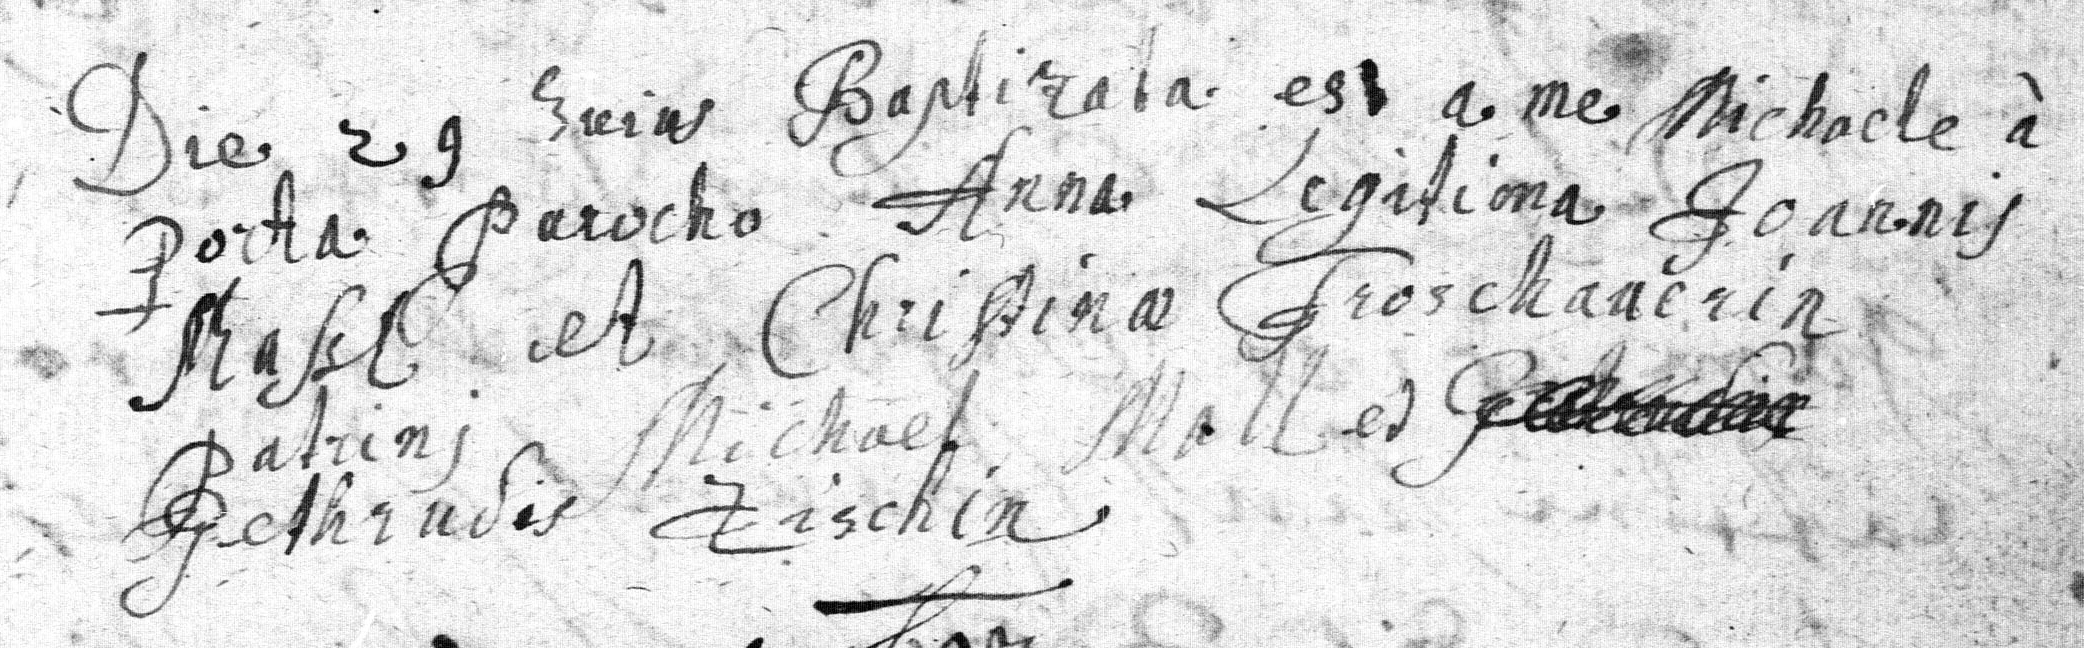 Die 29 huius Baptizata est a me Michaele à
Porta Parocho Anna Legitima Joannis
Massl et Christinæ Froschauerin
Patrinj Michael Moll et
Gethrudis Zischin